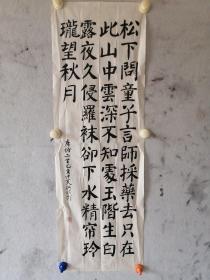 松下問童子言師採藥去只在
此山中雲深不知處玉階生白
露夜久侵羅袜卻下水精帘玲
瓏望秋月